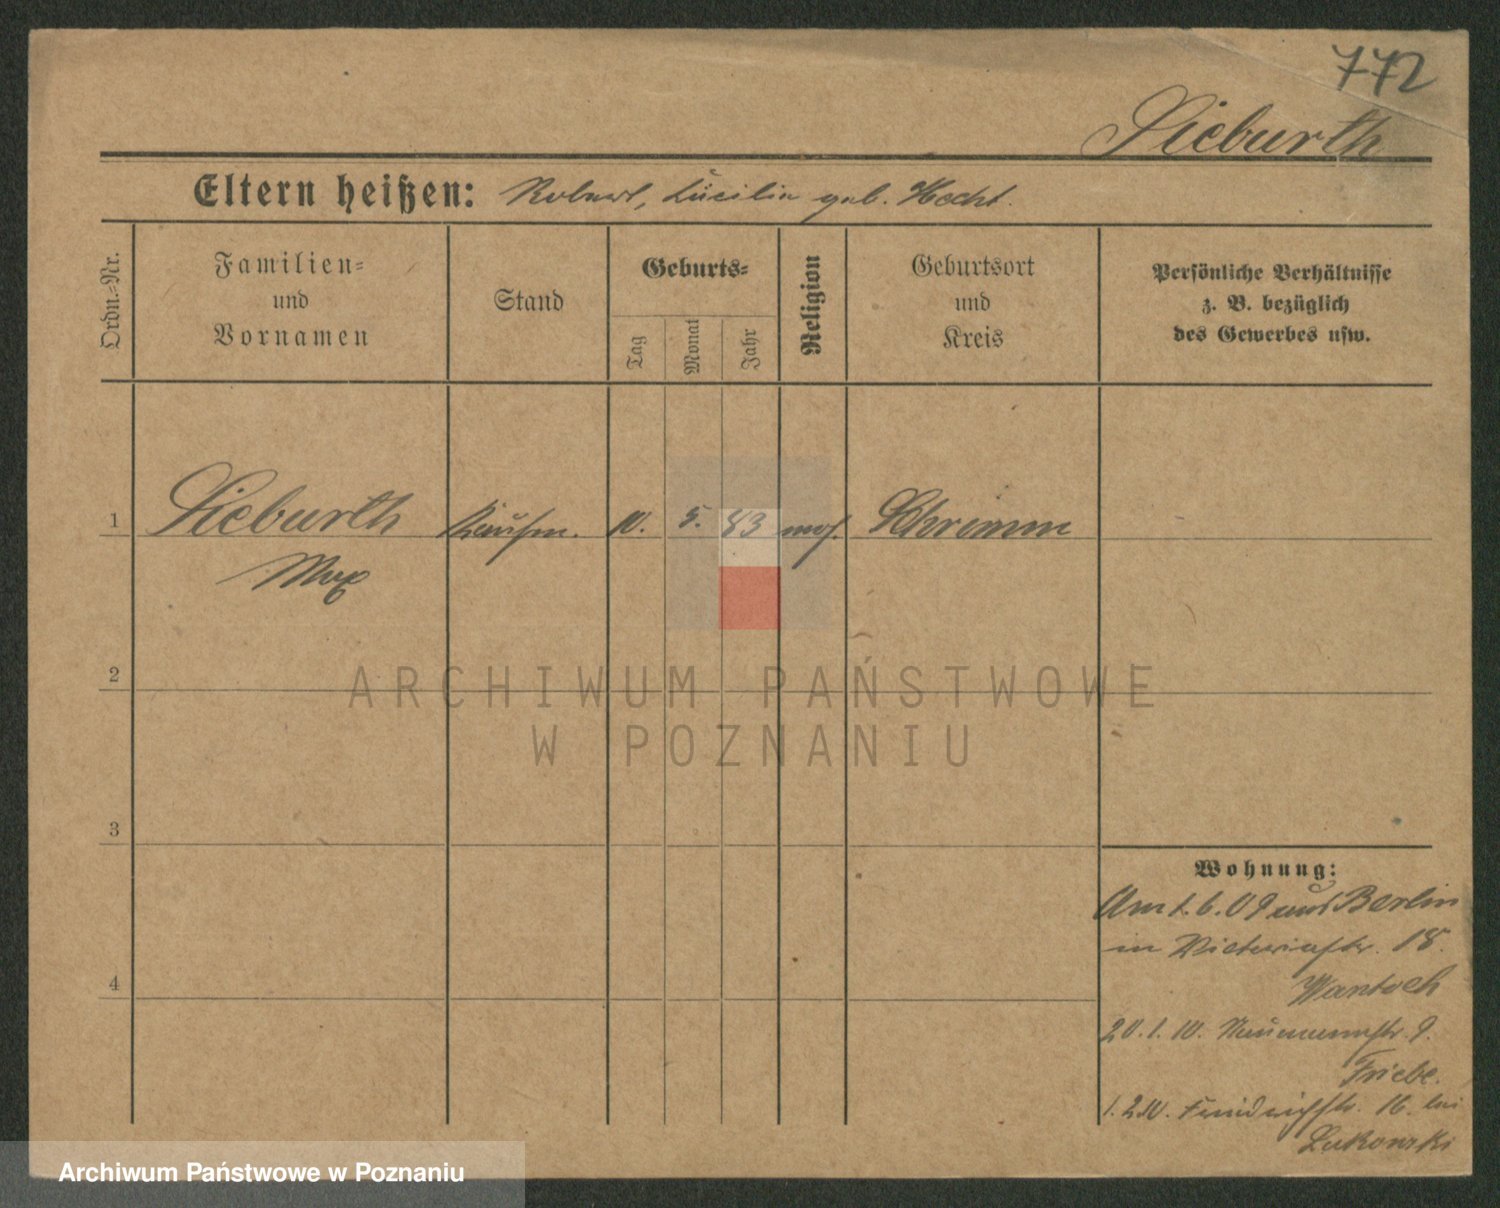 772
Sieburth
Eltern heißen: Robert, Cäcilie geb. Hecht.
Ordn.=Nr.
Familien=
und
Vornamen
Stand
Geburts=
Tag
Monat
Jahr
Religion
Geburtsort
und
Kreis
Persönliche Verhältnisse
z. B. bezüglich
des Gewerbes usw.
1 Sieburth Kaufm. 10. 5. 83 mos. Schrimm
Max
2
ARCHIWUM PAŃSTWOWE
W POZNANIU
3
4
Wohnung:
Am 1.6.09 aus Berlin
in Victoriastr. 18.
Wantoch
20.1.10. 9.
Friebe.
1.2.10. Friedrichstr. 16. bei
Lukowski
Archiwum Państwowe w Poznaniu